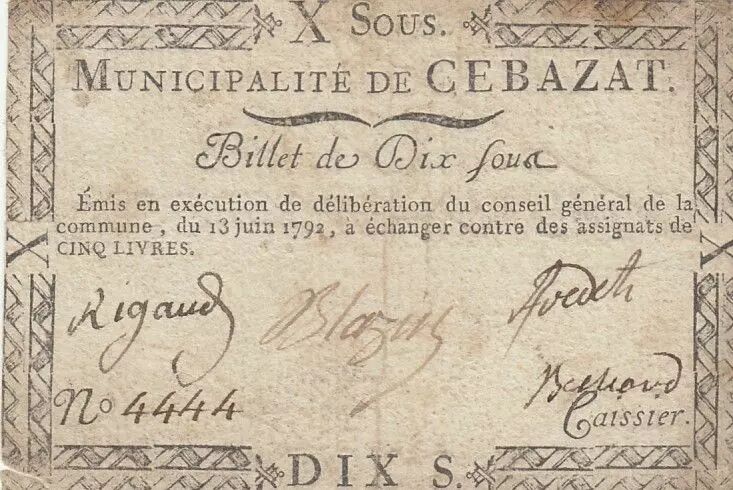 X SOUS.
MUNICIPALITÉ DE CEBAZAT.
Billet de Dix sous
Émis en exécution de délibération du conseil général de la
commune, du 13 juin 1792, à échanger contre des assignats de
CINQ LIVRES.
X X
Rigaud Blazin
No 4444
Caissier.
DIX S.